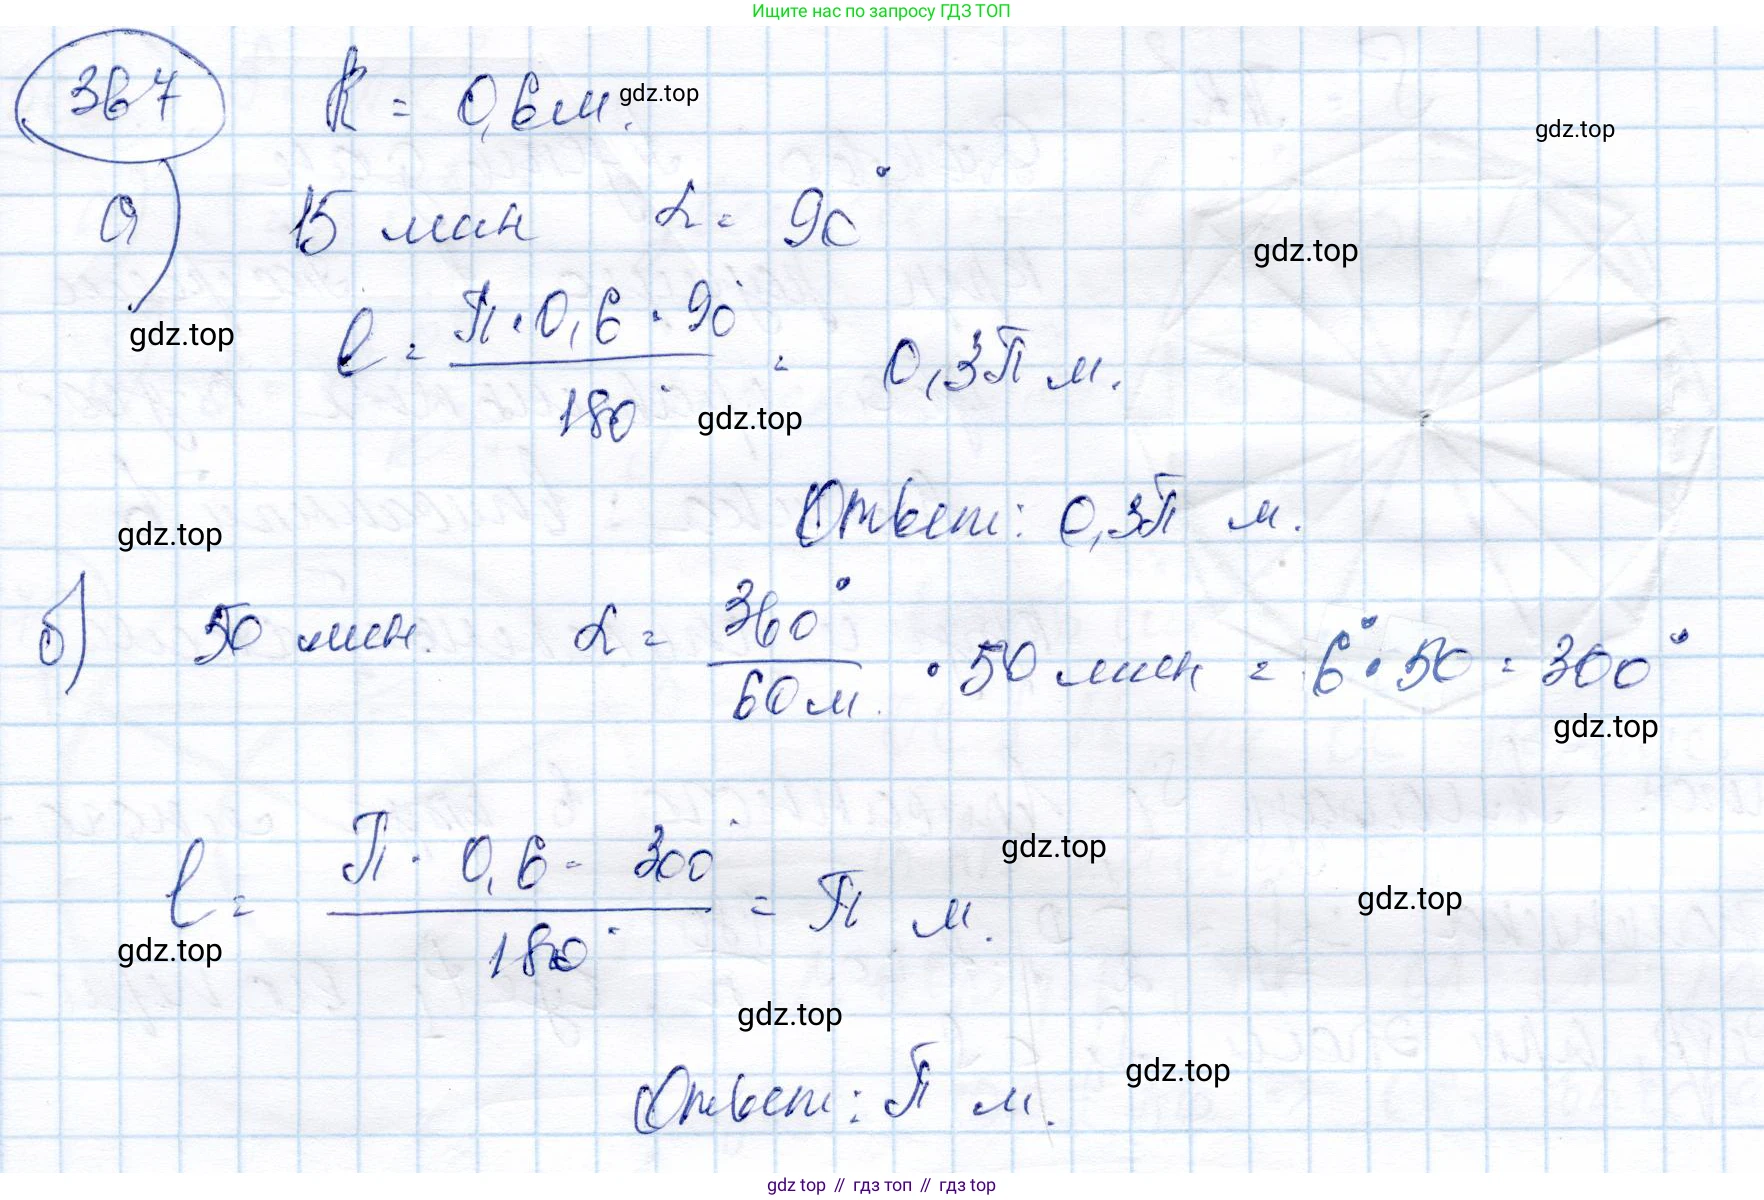 Ищите нас по запросу ГДЗ ТОП
367 R = 0,6 м. gdz.top
gdz.top
а) 15 мин α = 90°
gdz.top
gdz.top
l = π · 0,6 · 90° / 180° = 0,3π м.
gdz.top
Ответ: 0,3π м.
gdz.top
б) 50 мин. α = 360° / 60 м. · 50 мин = 6° · 50 = 300°
gdz.top
l = π · 0,6 · 300° / 180° = π м.
gdz.top
gdz.top
gdz.top
gdz.top
Ответ: π м.
gdz.top
gdz top // гдз топ // гдз top